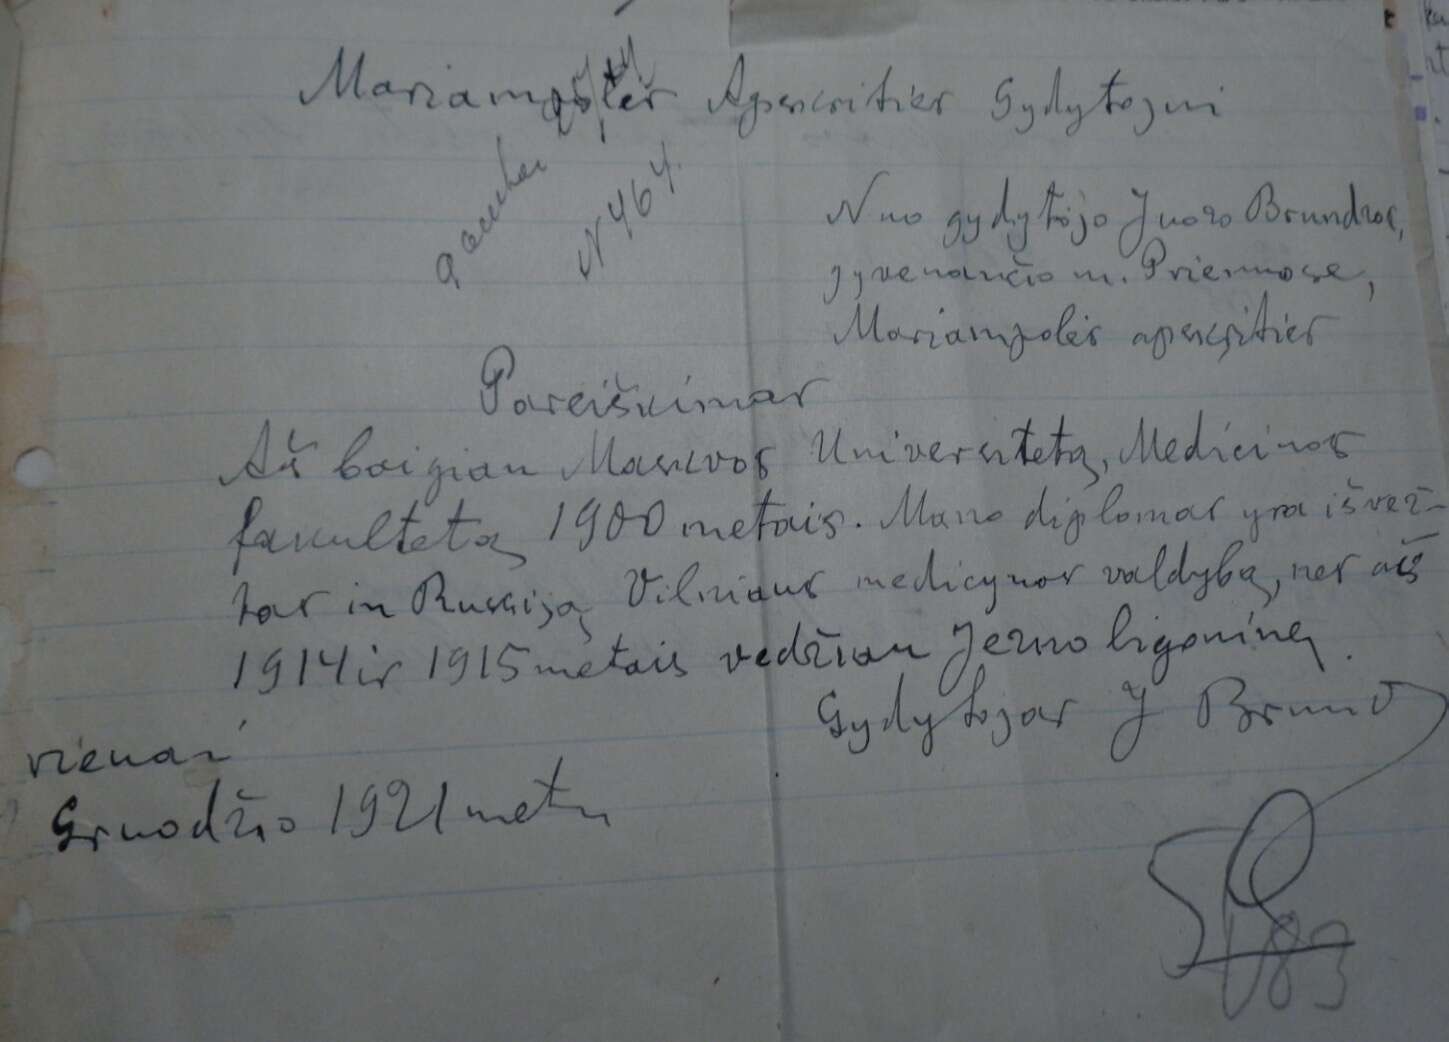 Mariampolės Apskrities Gydytojui
N 464.
Nuo gydytojo Juozo Brundzos,
gyvenančio m. Prienuose,
Mariampolės apskrities
Pareiškimas
Aš baigiau Maskvos Universitetą, Medicinos
fakultetą 1900 metais. Mano diplomas yra išvež-
tas in Rusiją Vilniaus medicynos valdybą, nes aš
1914 ir 1915 metais vedžiau Jezno ligoninę.
Gydytojas J Brund
vienas
Gruodžio 1921 metu
83